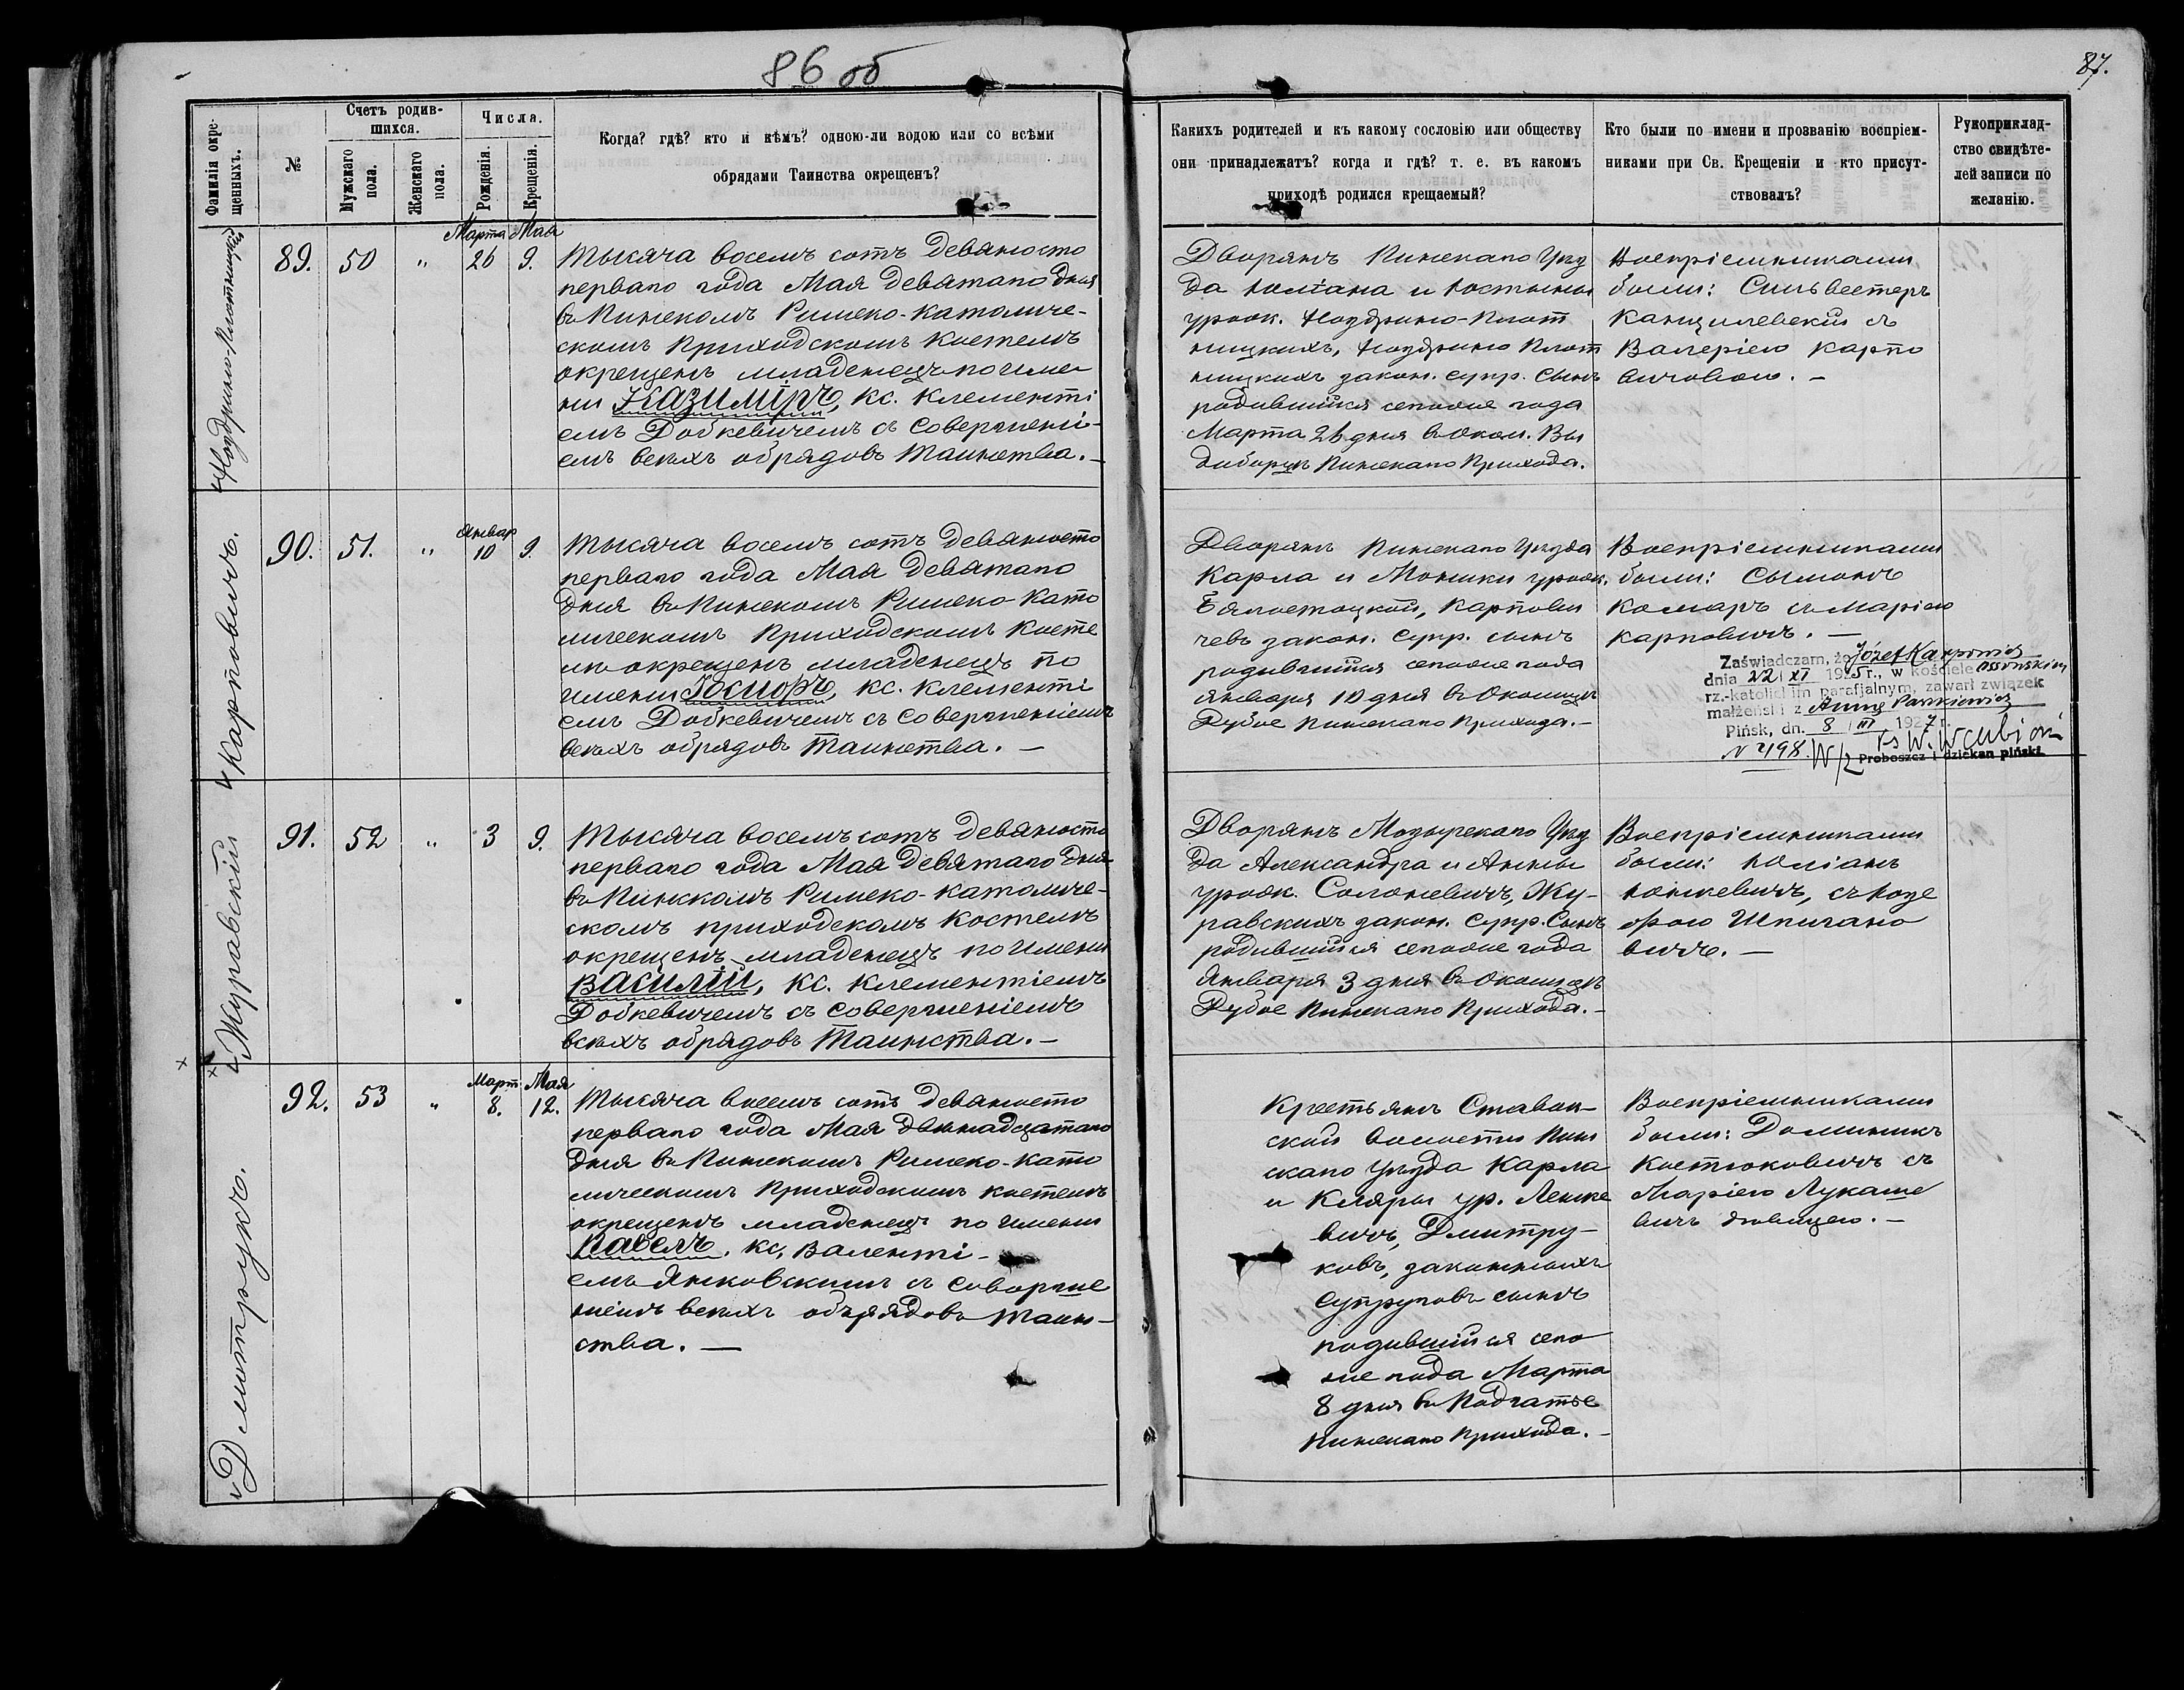 86 об
87.
Фамилія окре-
щенныхъ.
№
Счетъ родив-
шихся.
Мужскаго
пола.
Женскаго
пола.
Числа.
Рожденія.
Крещенія.
Когда? гдѣ? кто и кѣмъ? одною-ли водою или со всѣми
обрядами Таинства окрещенъ?
Какихъ родителей и къ какому сословію или обществу
они принадлежатъ? когда и гдѣ? т. е. въ какомъ
приходѣ родился крещаемый?
Кто были по имени и прозванію воспріем-
никами при Св. Крещеніи и кто присут-
ствовалъ?
Рукоприклад-
ство свидѣте-
лей записи по
желанію.
Ноздрино-Плотницкій
Марта Мая
89. 50 „ 26 9.
Тысяча восемь сотъ девяносто
перваго года Мая девятаго дня
въ Пинскомъ Римско-Католиче-
скомъ Приходскомъ Костелѣ
окрещенъ младенецъ по име
ни Казимiръ, Кс. Клементі
емъ Добкевичемъ съ Совершені-
емъ всѣхъ обрядовъ Таинства. –
Дворянъ Пинскаго Уѣз
да Юліана и Юстыны
урожк. Ноздрино-Плот
ницкихъ, Ноздрино Плот
ницкихъ закон. супр. Сынъ
родившійся сегоже года
Марта 26 дня въ Окол.
Пинскаго Прихода.
Воспріемниками
были: Сильвестеръ
съ
Валеріею Карпо
вичовою. –
Карповичъ.
Январ
90. 51. „ 10 9.
Тысяча восемь сотъ девяносто
перваго года Мая девятаго
дня въ Пинскомъ Римско Като
лическомъ Приходскомъ Косте
лѣ окрещенъ младенецъ по
имени Іосифъ, Кс. Клементі
емъ Добкевичемъ съ Совершеніемъ
всѣхъ обрядовъ Таинства. –
Дворянъ Пинскаго Уѣзда
Карла и Моники урожк.
Бялостоцкой, Карпови
чевъ закон. Супр. сынъ
родившійся сегоже года
Января 10 дня въ Околицѣ
Дубое Пинскаго Прихода. –
Воспріемниками
были: Сымонъ
Комаръ съ Маріею
Карповичъ. –
Zaświadczam, że Józef Karpowicz
dnia 22 XI 1925 r., w kościele
rz.-katolickim parafjalnym, zawarł związek
małżeński z Anną
Pińsk, dn. 8 III 1927 r.
№ 498.
Proboszcz i dziekan piński.
Журавскій
91. 52 „ 3 9.
Тысяча восемь сотъ девяносто
перваго года Мая девятаго дня
въ Пинскомъ Римско-Католиче-
скомъ приходскомъ Костелѣ
окрещенъ младенецъ по имени
Василій, Кс. Клементіемъ
Добкевичемъ съ Совершеніемъ
всѣхъ обрядовъ Таинства. –
Дворянъ Мозырскаго Уѣз
да Александра и Анны
урожк. Солоневичъ, Жу-
равскихъ закон. Супр. Сынъ
родившійся сегоже года
Января 3 дня въ Околицѣ
Дубое Пинскаго Прихода. –
Воспріемниками
были: Юліанъ
съ Юзе
фою
вичъ. –
Дмитрукъ.
Март Мая
92. 53 „ 8. 12.
Тысяча восемь сотъ девяносто
перваго года Мая двѣнадцатаго
дня въ Пинскомъ Римско-Като
лическомъ Приходскомъ Костелѣ
окрещенъ младенецъ по имени
Павелъ, Кс. Валенті-
емъ Янковскимъ съ Соверше
ніемъ всѣхъ обрядовъ Таин-
ства. –
Крестьянъ Ставок-
ской волости Пин
скаго Уѣзда Карла
и Кляры ур. Ленке
вичъ, Дмитру-
ковъ, законныхъ
Супруговъ сынъ
родившійся сего
же года Марта
8 дня въ Подгатье
Пинскаго Прихода. –
Воспріемниками
были: Доминикъ
Костюковичъ съ
Маріею Лукаше
вичъ дѣвицею. –